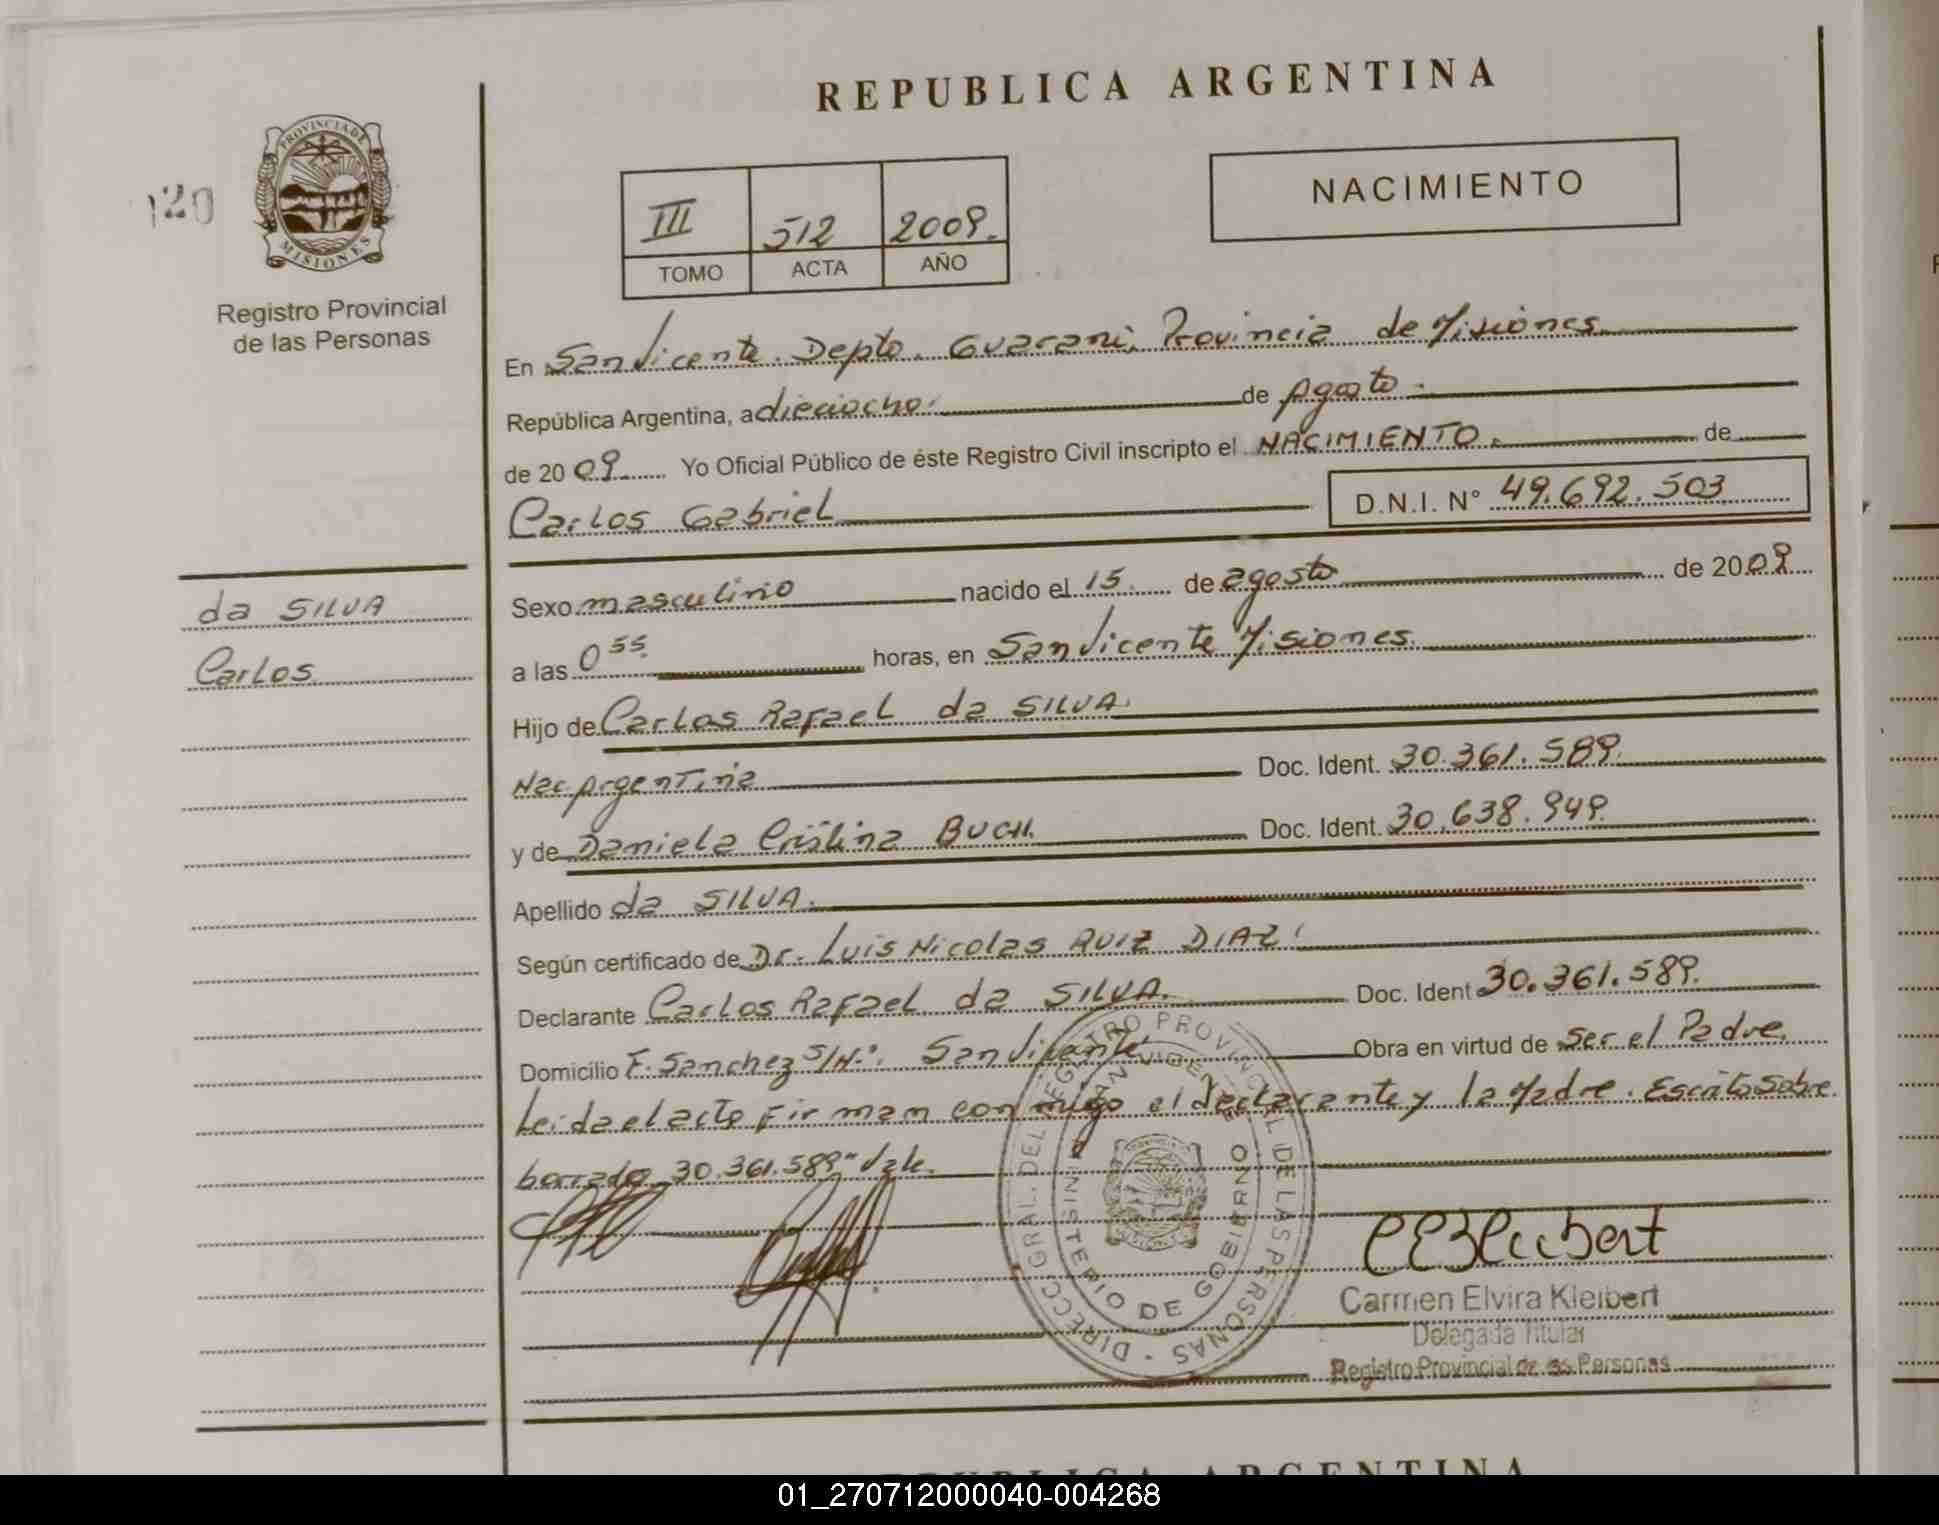 REPUBLICA ARGENTINA
120
PROVINCIA DE
MISIONES
Registro Provincial
de las Personas
III 512 2009.
TOMO ACTA AÑO
NACIMIENTO
En San Vicente. Depto. Guarani, Provincia de Misiones
República Argentina, a dieciocho. de Agosto.
de 20 09 Yo Oficial Público de éste Registro Civil inscripto el NACIMIENTO. de
Carlos Gabriel D.N.I. N° 49.692.503
da SILVA
Carlos
Sexo masculino nacido el 15. de agosto de 2009
a las 0 55. horas, en San Vicente Misiones.
Hijo de Carlos Rafael da SILVA.
Nac. Argentina Doc. Ident. 30.361.589.
y de Daniela Cristina BUCH. Doc. Ident. 30.638.949.
Apellido da SILVA.
Según certificado de Dr. Luis Nicolas RUIZ DIAZ.
Declarante Carlos Rafael da SILVA. Doc. Ident 30.361.589.
Domicilio F. Sanchez S/N°. San Vicente Obra en virtud de ser el Padre.
Leida el acto firman conmigo el declarante y la Madre. Escrito sobre
borrado 30.361.589" Vale.
DIRECC GRAL. DEL REGISTRO PROVINCIAL DE LAS PERSONAS -
SAN VICENTE
MINISTERIO DE GOBIERNO
CEKleibert
Carmen Elvira Kleibert
Delegada Titular
Registro Provincial de las Personas
REPUBLICA ARGENTINA
01_270712000040-004268